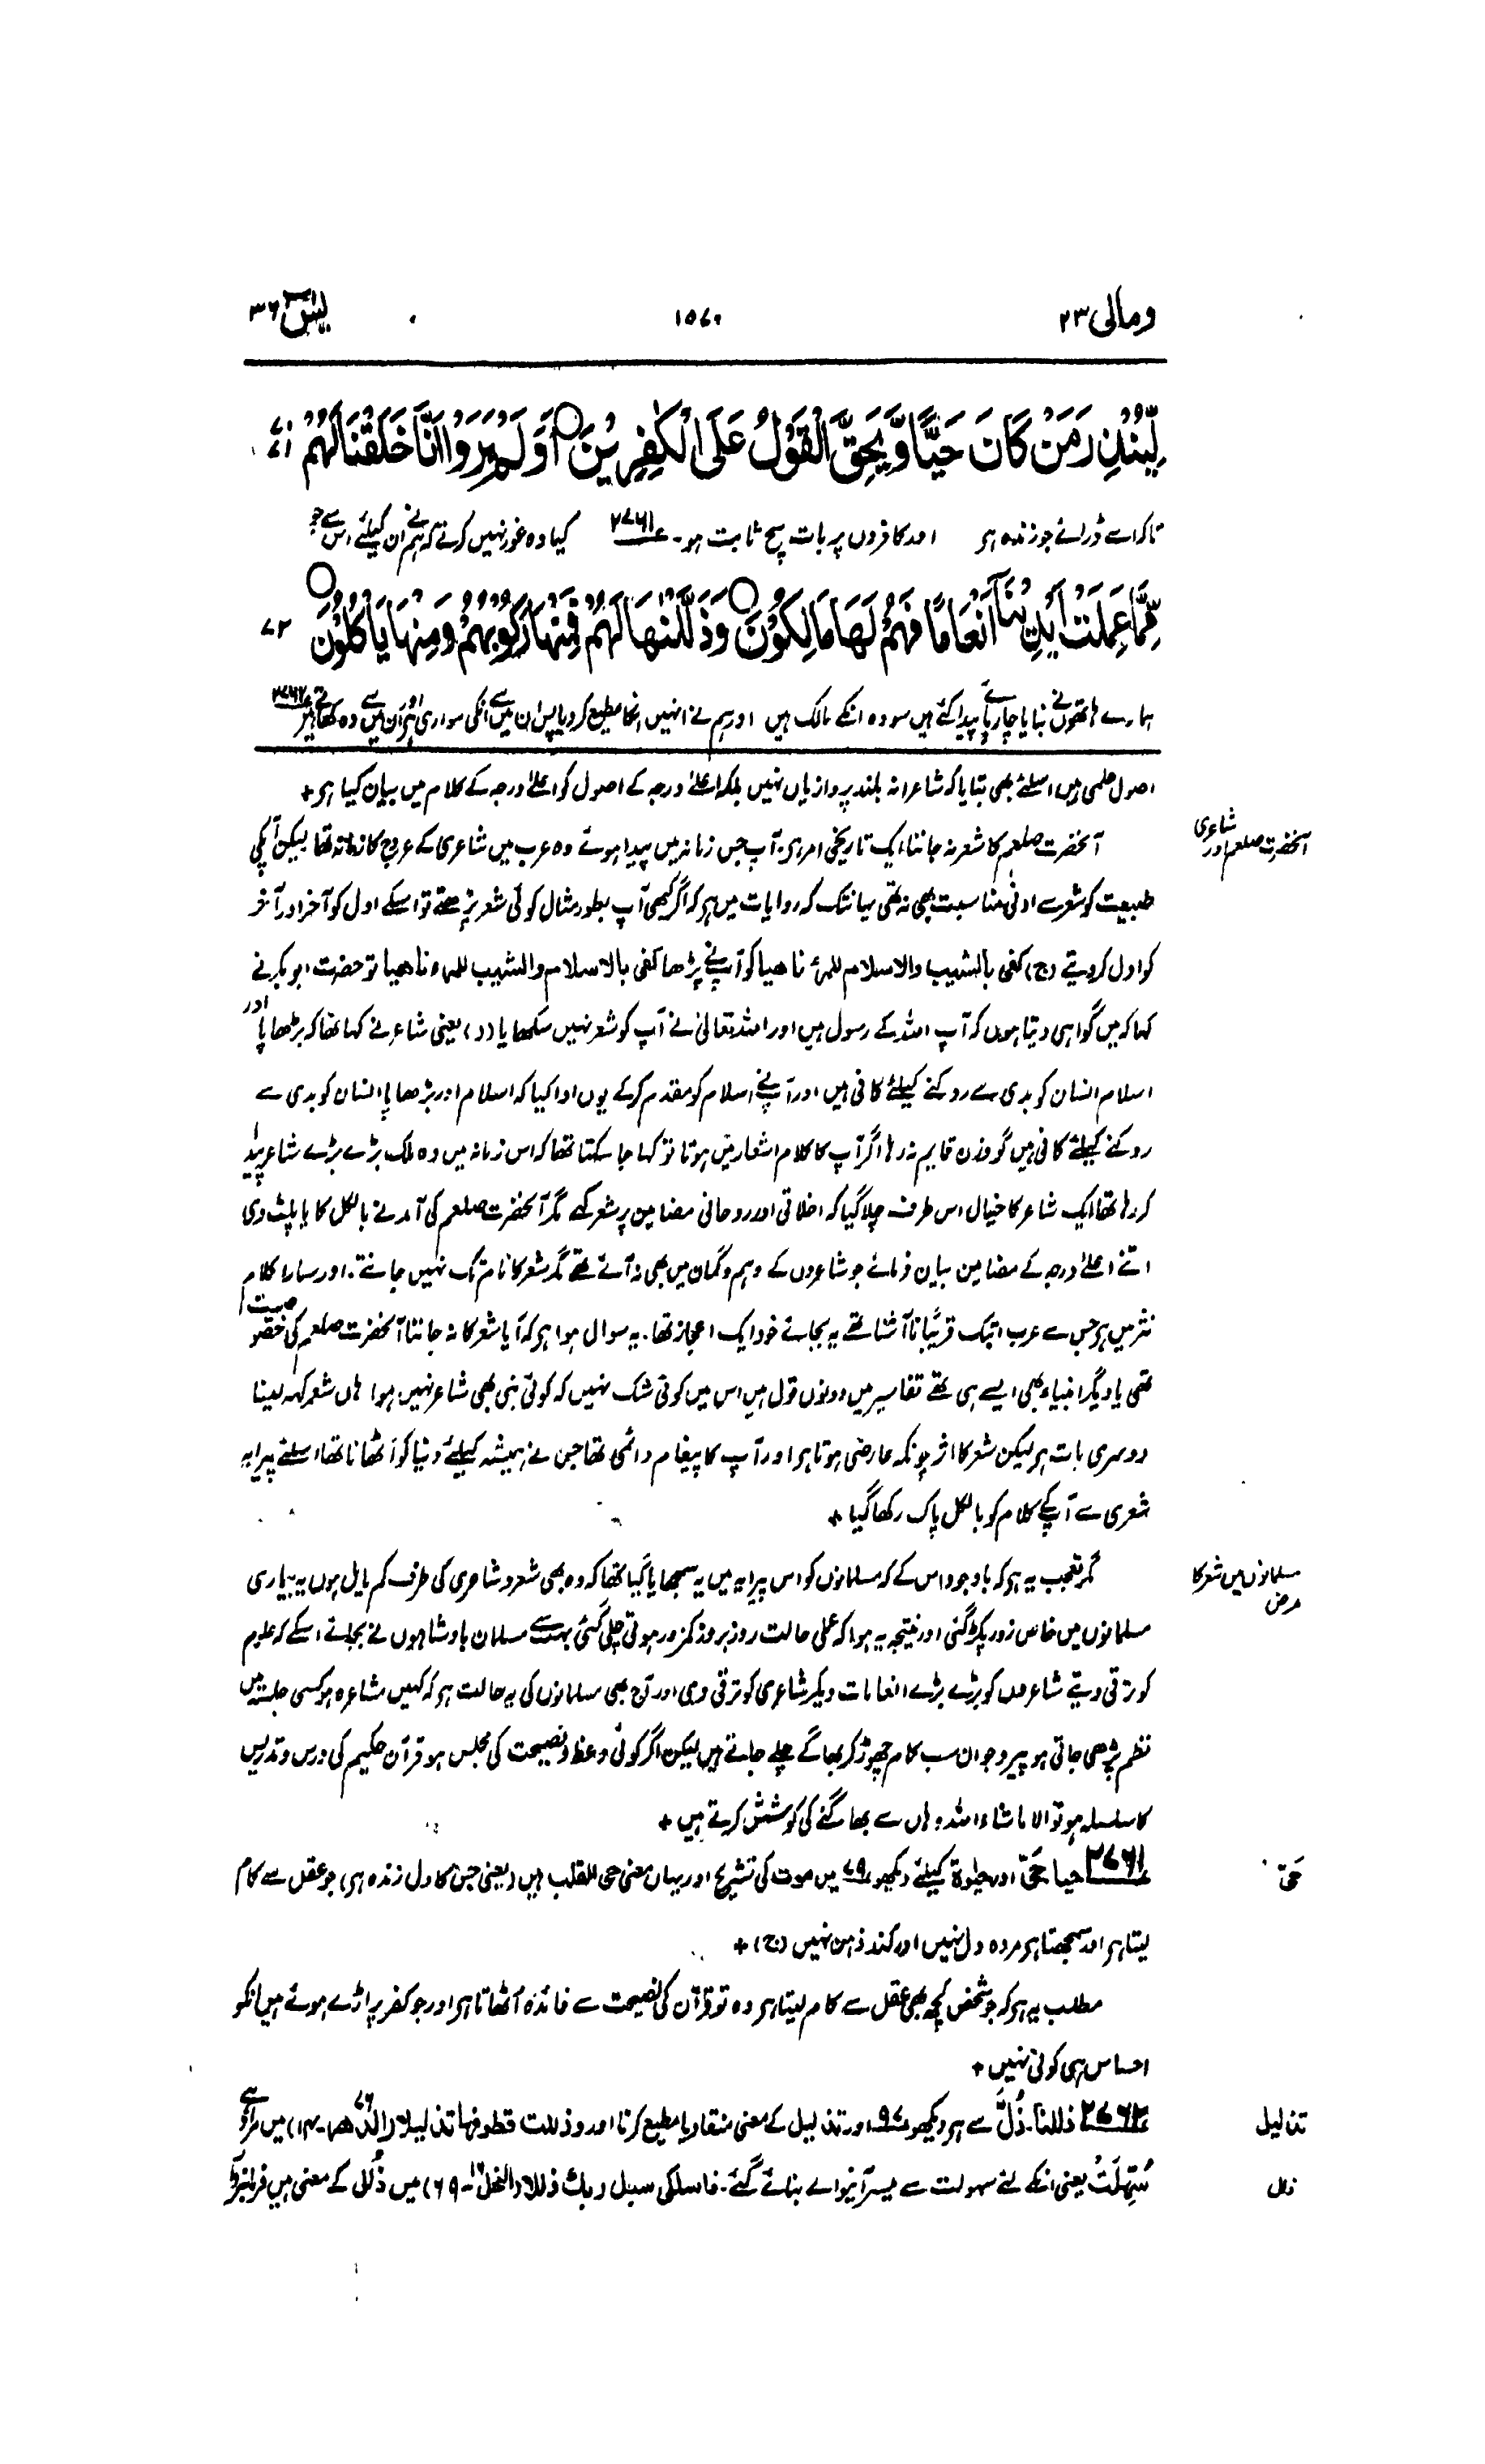 ومالی ۲۳
۱۵۷۰
یٰسٓ ۳۶
لِّيُنْذِرَ مَنْ كَانَ حَيًّا وَّيَحِقَّ الْقَوْلُ عَلَى الْكٰفِرِيْنَ ○ اَوَلَمْ يَرَوْا اَنَّا خَلَقْنَا لَهُمْ ۷۱
تاکہ اسے ڈرائے جو زندہ ہو اور کافروں پر بات سچ ثابت ہو۔ ۲۷۶۱ کیا وہ غور نہیں کرتے کہ ہم نے ان کیلئے اس سے جو
مِّمَّا عَمِلَتْ اَيْدِيْنَآ اَنْعَامًا فَهُمْ لَهَا مَالِكُوْنَ ○ وَذَلَّلْنٰهَا لَهُمْ فَمِنْهَا رَكُوْبُهُمْ وَمِنْهَا يَاْكُلُوْنَ ○ ۷۲
ہمارے ہاتھوں نے بنایا چارپائے پیدا کئے ہیں سو وہ انکے مالک ہیں اور ہم نے انہیں انکا مطیع کردیا پس ان میں سے انکی سواری ہو اور ان میں سے وہ کھاتے ہیں ۲۷۶۲
اصول علمی ہیں اسلئے بھی بتایا کہ شاعرانہ بلند پروازیاں نہیں بلکہ اعلیٰ درجہ کے اصول کو اعلیٰ درجہ کے کلام میں بیان کیا ہو +
آنحضرت صلعم اور شاعری
آنحضرت صلعم کا شعر نہ جاننا ایک تاریخی امر ہو۔ آپ جس زمانہ میں پیدا ہوئے وہ عرب میں شاعری کے عروج کا زمانہ تھا لیکن آپکی
طبیعت کو شعر سے ادنیٰ مناسبت بھی نہ تھی یہانتک کہ روایات میں ہو کہ اگر کبھی آپ بطور مثال کوئی شعر پڑھتے تو اسکے اول کو آخر اور آخر
کو اول کردیتے (ج) کفی بالشیب والاسلام للمرء ناھیا کو آپنے پڑھا کفی بالاسلام والشیب للمرء ناھیا تو حضرت ابوبکر نے
کہا کہ میں گواہی دیتا ہوں کہ آپ اللہ کے رسول ہیں اور اللہ تعالیٰ نے آپ کو شعر نہیں سکھایا (د) یعنی شاعر نے کہا تھا کہ بڑھاپا اور
اسلام انسان کو بدی سے روکنے کیلئے کافی ہیں اور آپنے اسلام کو مقدم کرکے یوں ادا کیا کہ اسلام اور بڑھاپا انسان کو بدی سے
روکنے کیلئے کافی ہیں گو وزن قایم نہ رہا اگر آپ کا کلام اشعار میں ہوتا تو کہا جا سکتا تھا کہ اس زمانہ میں وہ ملک بڑے بڑے شاعر پیدا
کر رہا تھا ایک شاعر کا خیال اس طرف چلا گیا کہ اخلاقی اور روحانی مضامین پر شعر کہے مگر آنحضرت صلعم کی آمد نے بالکل کایا پلٹ دی
اتنے اعلیٰ درجہ کے مضامین بیان فرمائے جو شاعروں کے وہم و گمان میں بھی نہ آئے تھے مگر شعر کا نام تک نہیں جانتے۔ اور سارا کلام
نثر میں ہو جس سے عرب ابتک قریبًا ناآشنا تھے یہ بجائے خود ایک اعجاز تھا۔ یہ سوال ہوا ہو کہ آیا شعر کا نہ جاننا آنحضرت صلعم کی خصوصیت
تھی یا دیگر انبیاء بھی ایسے ہی تھے تفاسیر میں دونوں قول ہیں اس میں کوئی شک نہیں کہ کوئی نبی بھی شاعر نہیں ہوا ہاں شعر کہہ لینا
دوسری بات ہو لیکن شعر کا اثر چونکہ عارضی ہوتا ہو اور آپ کا پیغام دائمی تھا جس نے ہمیشہ کیلئے دنیا کو اُٹھانا تھا اسلئے پیرایہ
شعری سے آپکے کلام کو بالکل پاک رکھا گیا +
مسلمانوں میں شعر کا مرض
مگر تعجب یہ ہو کہ باوجود اس کے کہ مسلمانوں کو اس پیرایہ میں یہ سمجھایا گیا تھا کہ وہ بھی شعر و شاعری کی طرف کم مایل ہوں یہ بیماری
مسلمانوں میں خاص زور پکڑ گئی اور نتیجہ یہ ہوا کہ عملی حالت روز بروز کمزور ہوتی چلی گئی بہت سے مسلمان بادشاہوں نے بجائے اسکے کہ علوم
کو ترقی دیتے شاعروں کو بڑے بڑے انعامات دیکر شاعری کو ترقی دی اور آج بھی مسلمانوں کی یہ حالت ہو کہ کہیں مشاعرہ ہو کسی جلسہ میں
نظم پڑھی جاتی ہو پیر و جوان سب کام چھوڑ کر بھاگے چلے جاتے ہیں لیکن اگر کوئی وعظ و نصیحت کی مجلس ہو قرآن حکیم کی درس و تدریس
کا سلسلہ ہو تو الا ماشاء اللہ وہاں سے بھاگنے کی کوشش کرتے ہیں +
حَیّ
۲۷۶۱ حیا حَیّ اور حیٰوۃ کیلئے دیکھو ۷۹ میں موت کی تشریح اور یہاں معنی حی القلب ہیں (یعنی جس کا دل زندہ ہو) جو عقل سے کام
لیتا ہو اور سمجھتا ہو مردہ دل نہیں اور کند ذہن نہیں (ج) +
مطلب یہ ہو کہ جو شخص کچھ بھی عقل سے کام لیتا ہو وہ تو قرآن کی نصیحت سے فائدہ اُٹھاتا ہو اور جو کفر پر اڑے ہوئے ہیں انکو
احساس ہی کوئی نہیں +
تذلیل
۲۷۶۲ ذللنا۔ ذُلّ سے ہو دیکھو ۹۷ اور تذلیل کے معنی منقاد یا مطیع کرنا اور وذللت قطوفہا تذلیلا (الدھر ۷۶۔۱۴) میں مراد ہے
ذلل
سُہِّلَتْ یعنی انکے لئے سہولت سے میسر آنیوالے بنائے گئے۔ فاسلکی سبل ربک ذللا (النحل ۱۶۔۶۹) میں ذُلُل کے معنی ہیں